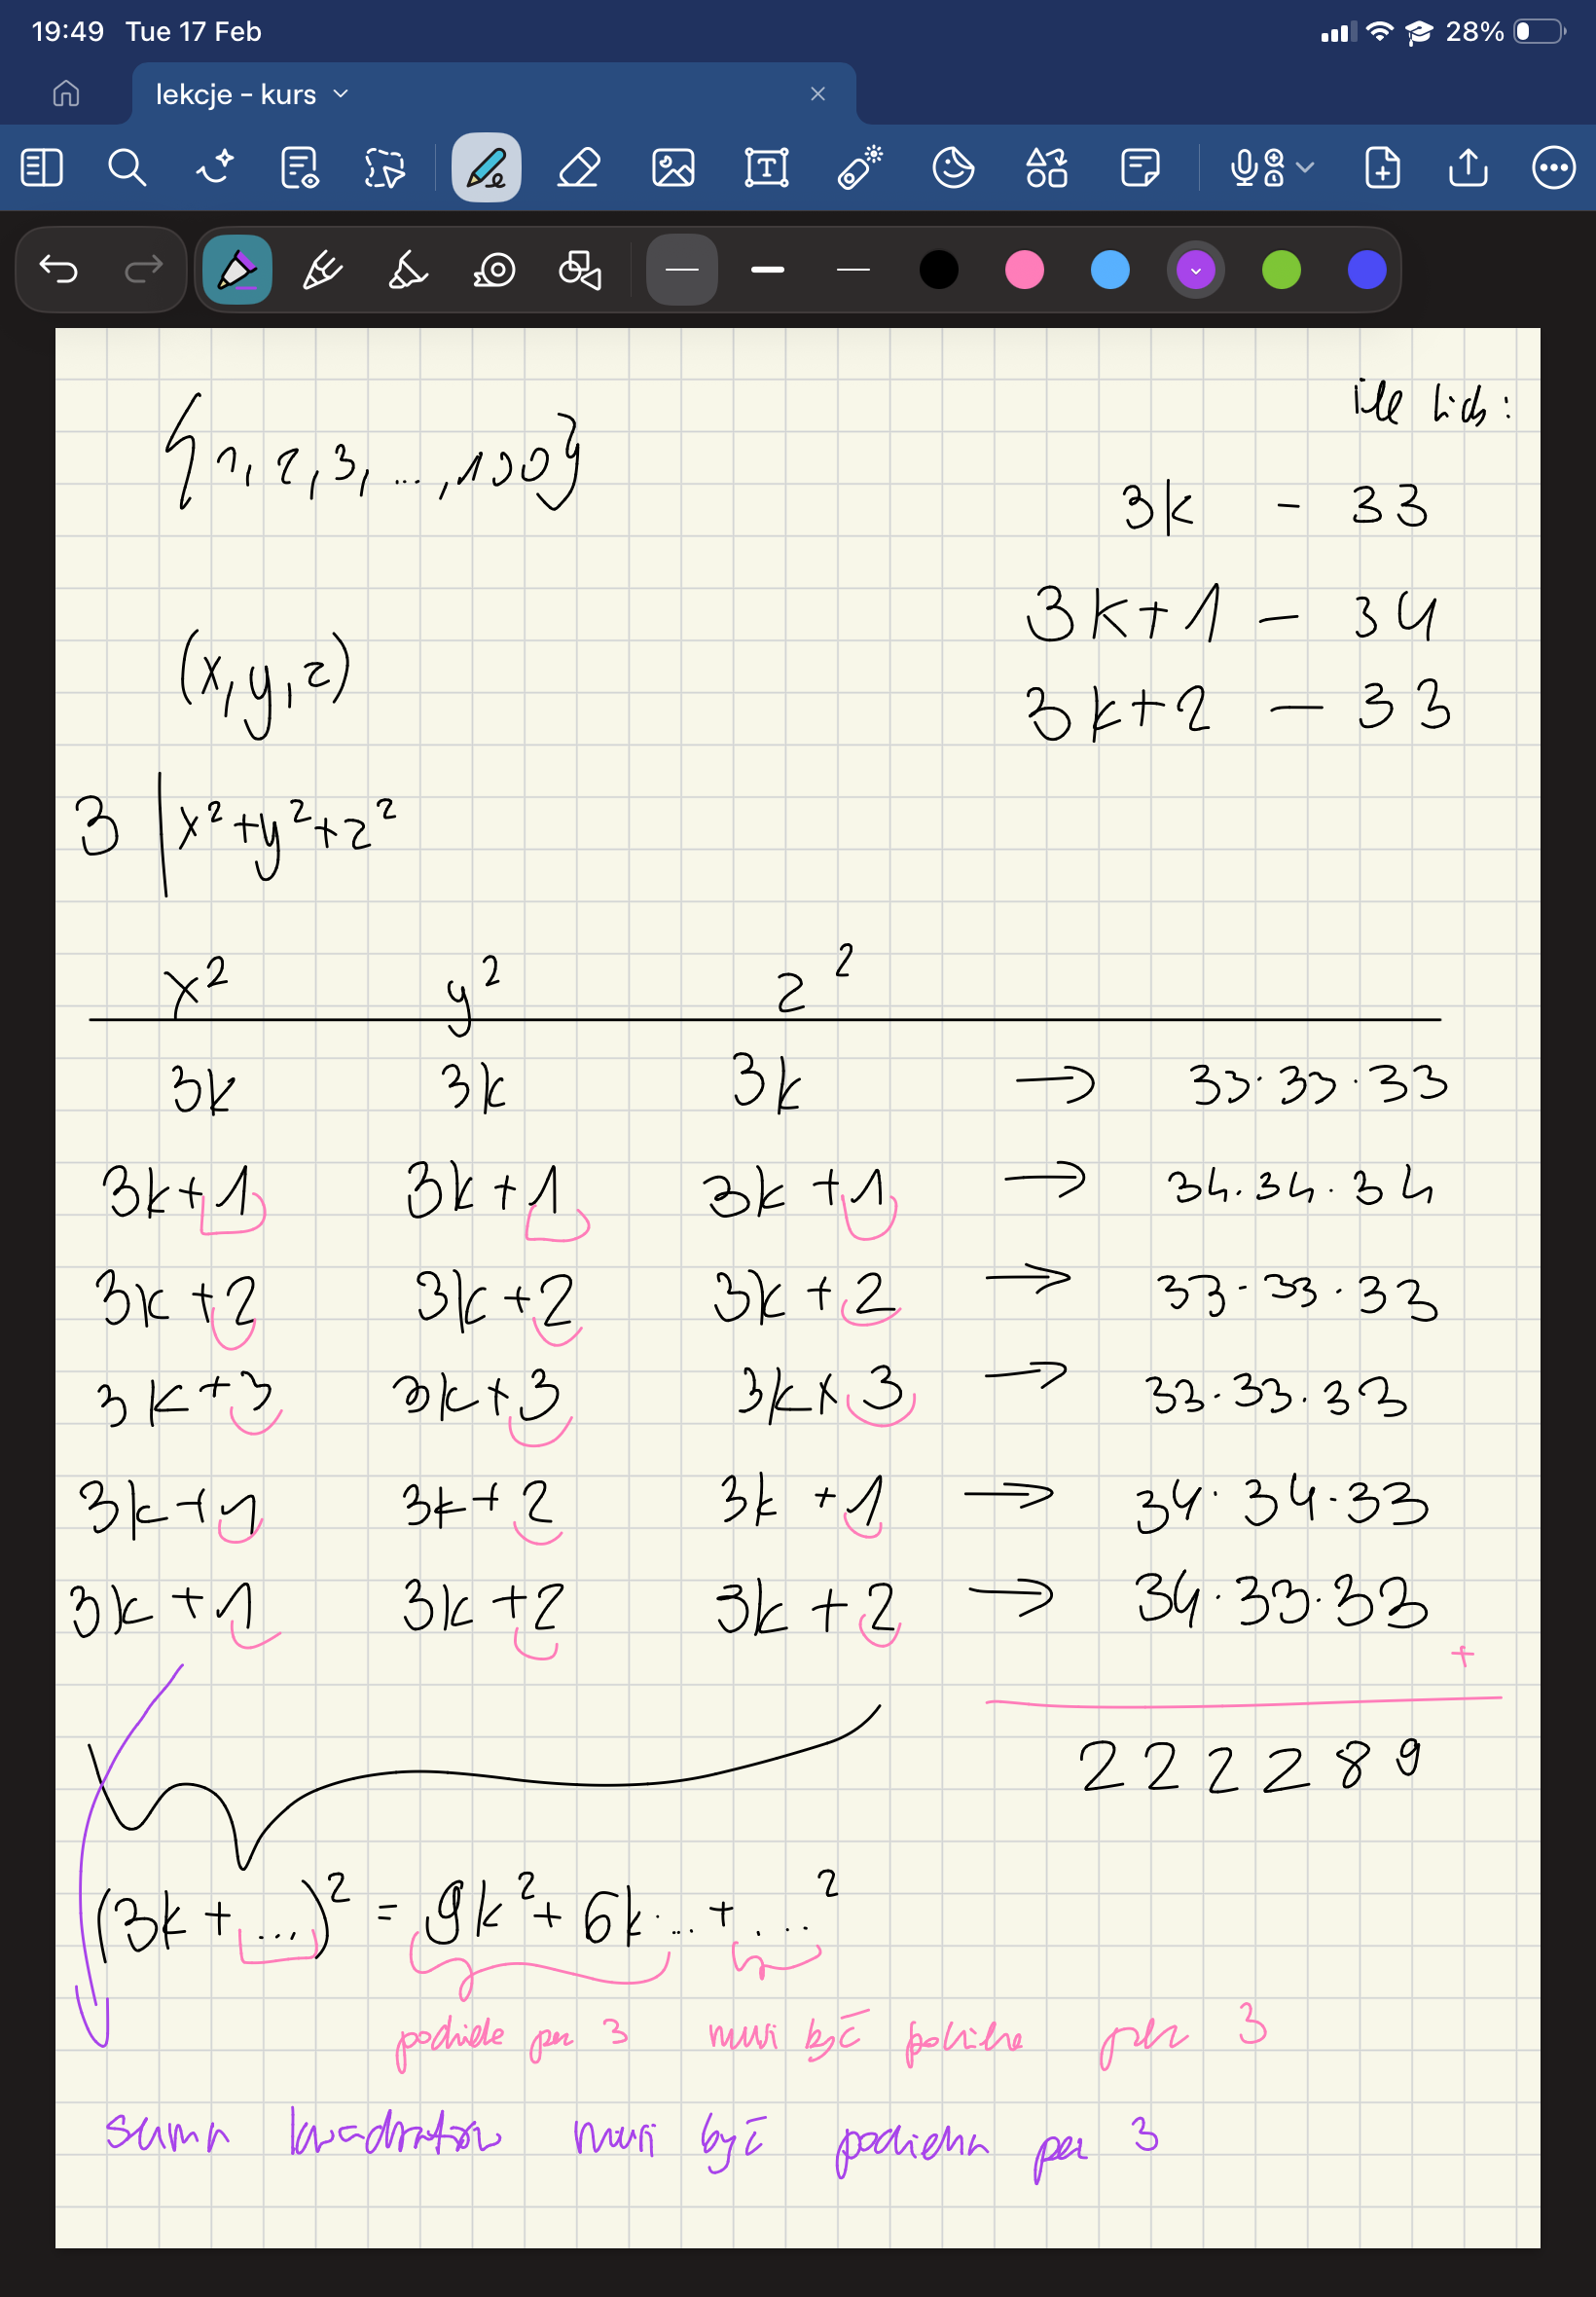 19:49 Tue 17 Feb 28%
lekcje - kurs
{1, 2, 3, ..., 100}
ile liczb:
3k - 33
3k+1 - 34
(x, y, z)
3k+2 - 33
3 | x²+y²+z²
x² y² z²
3k 3k 3k → 33·33·33
3k+1 3k+1 3k+1 → 34·34·34
3k+2 3k+2 3k+2 → 33·33·33
3k+3 3k+3 3k+3 → 33·33·33
3k+1 3k+2 3k+1 → 34·34·33
3k+1 3k+2 3k+2 → 34·33·33
+
222289
(3k+...)² = 9k²+6k·...+...²
podzielne przez 3 musi być podzielne przez 3
suma kwadratów musi być podzielna przez 3